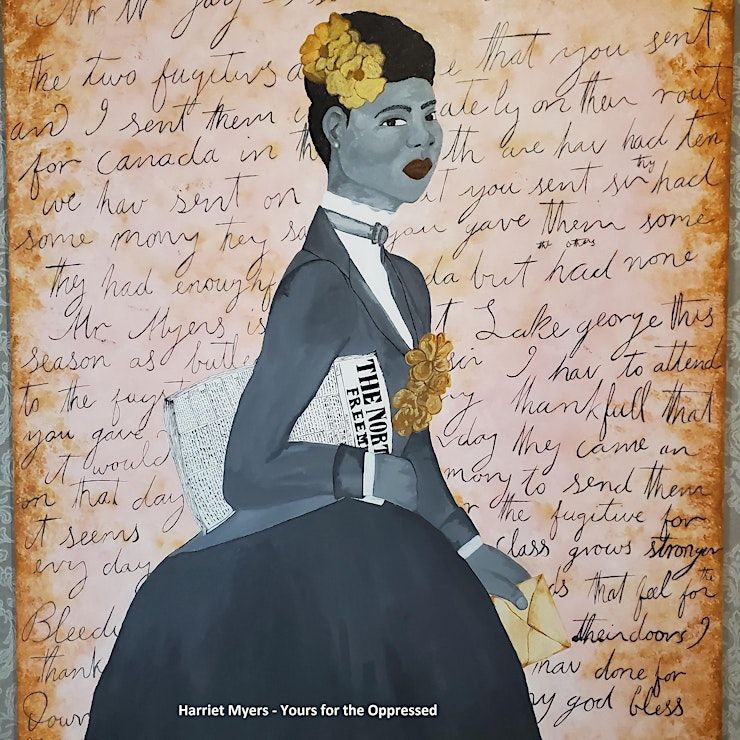 Mr W Jay
The two fugitivs a e that you sent
and I sent them i ately on their rout
for Canada in th th are hav had ten
thy
we hav sent on t you sent sir had
some mony they sa you gave them some
the others
they had enough f da but had none
Mr Myers is t Lake george this
season as butle sir I hav to attend
to the fugit ry thankfull that
you gave day they came an
it would mony to send them
on that day r the fugitive for
it seems class grows stronger
evry day ds that feel for the
Bleedi their doors I
thank hav done for
Your my god bless
THE NORT
FREEM
Harriet Myers - Yours for the Oppressed